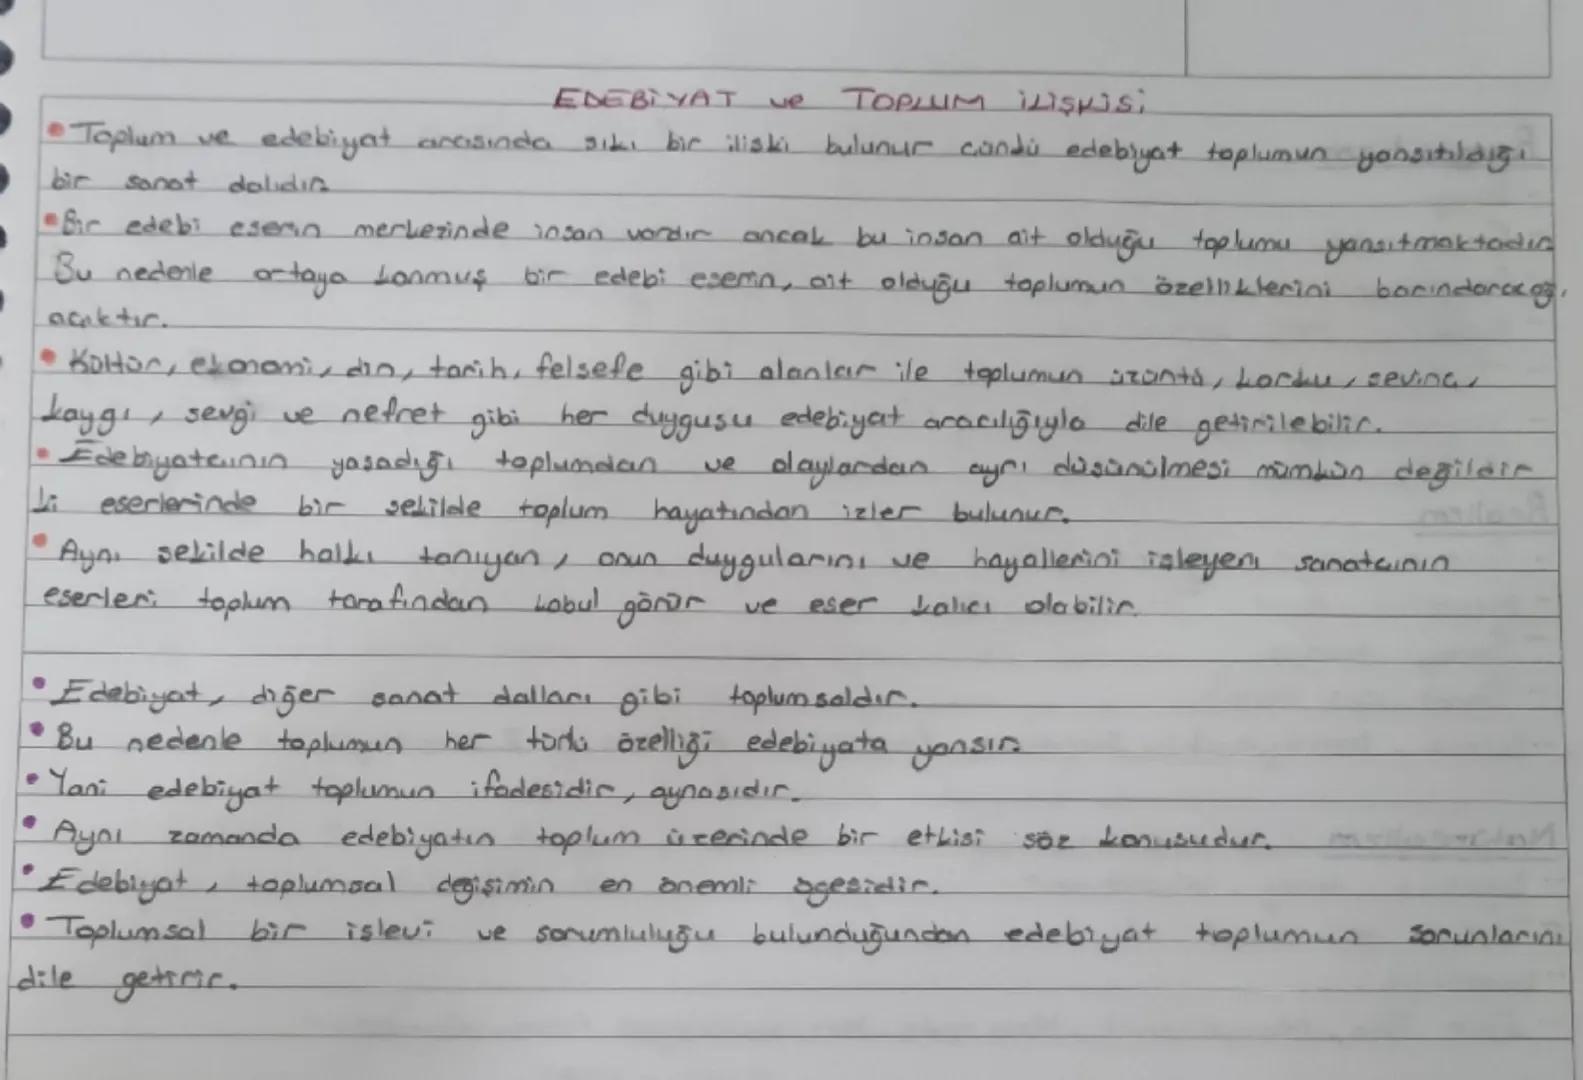 EDEBİYAT ve TOPLUM İLİŞKİSİ
• Toplum ve edebiyat arasında sıkı bir ilişki bulunur çünkü edebiyat toplumun yansıtıldığı
bir sanat dalıdır.
• Bir edebi eserin merkezinde insan vardır ancak bu insan ait olduğu toplumu yansıtmaktadır.
Bu nedenle ortaya konmuş bir edebi eserin, ait olduğu toplumun özelliklerini barındıracağı
açıktır.
• Kültür, ekonomi, din, tarih, felsefe gibi alanlar ile toplumun üzüntü, korku, sevinç,
kaygı, sevgi ve nefret gibi her duygusu edebiyat aracılığıyla dile getirilebilir.
• Edebiyatçının yaşadığı toplumdan ve olaylardan ayrı düşünülmesi mümkün değildir
ki eserlerinde bir şekilde toplum hayatından izler bulunur.
• Aynı şekilde halkı tanıyan, onun duygularını ve hayallerini işleyen sanatçının
eserleri toplum tarafından kabul görür ve eser kalıcı olabilir.
• Edebiyat, diğer sanat dalları gibi toplumsaldır.
• Bu nedenle toplumun her türlü özelliği edebiyata yansır.
• Yani edebiyat toplumun ifadesidir, aynasıdır.
• Aynı zamanda edebiyatın toplum üzerinde bir etkisi söz konusudur.
• Edebiyat, toplumsal değişimin en önemli ögesidir.
• Toplumsal bir işlevi ve sorumluluğu bulunduğundan edebiyat toplumun sorunlarını
dile getirir.